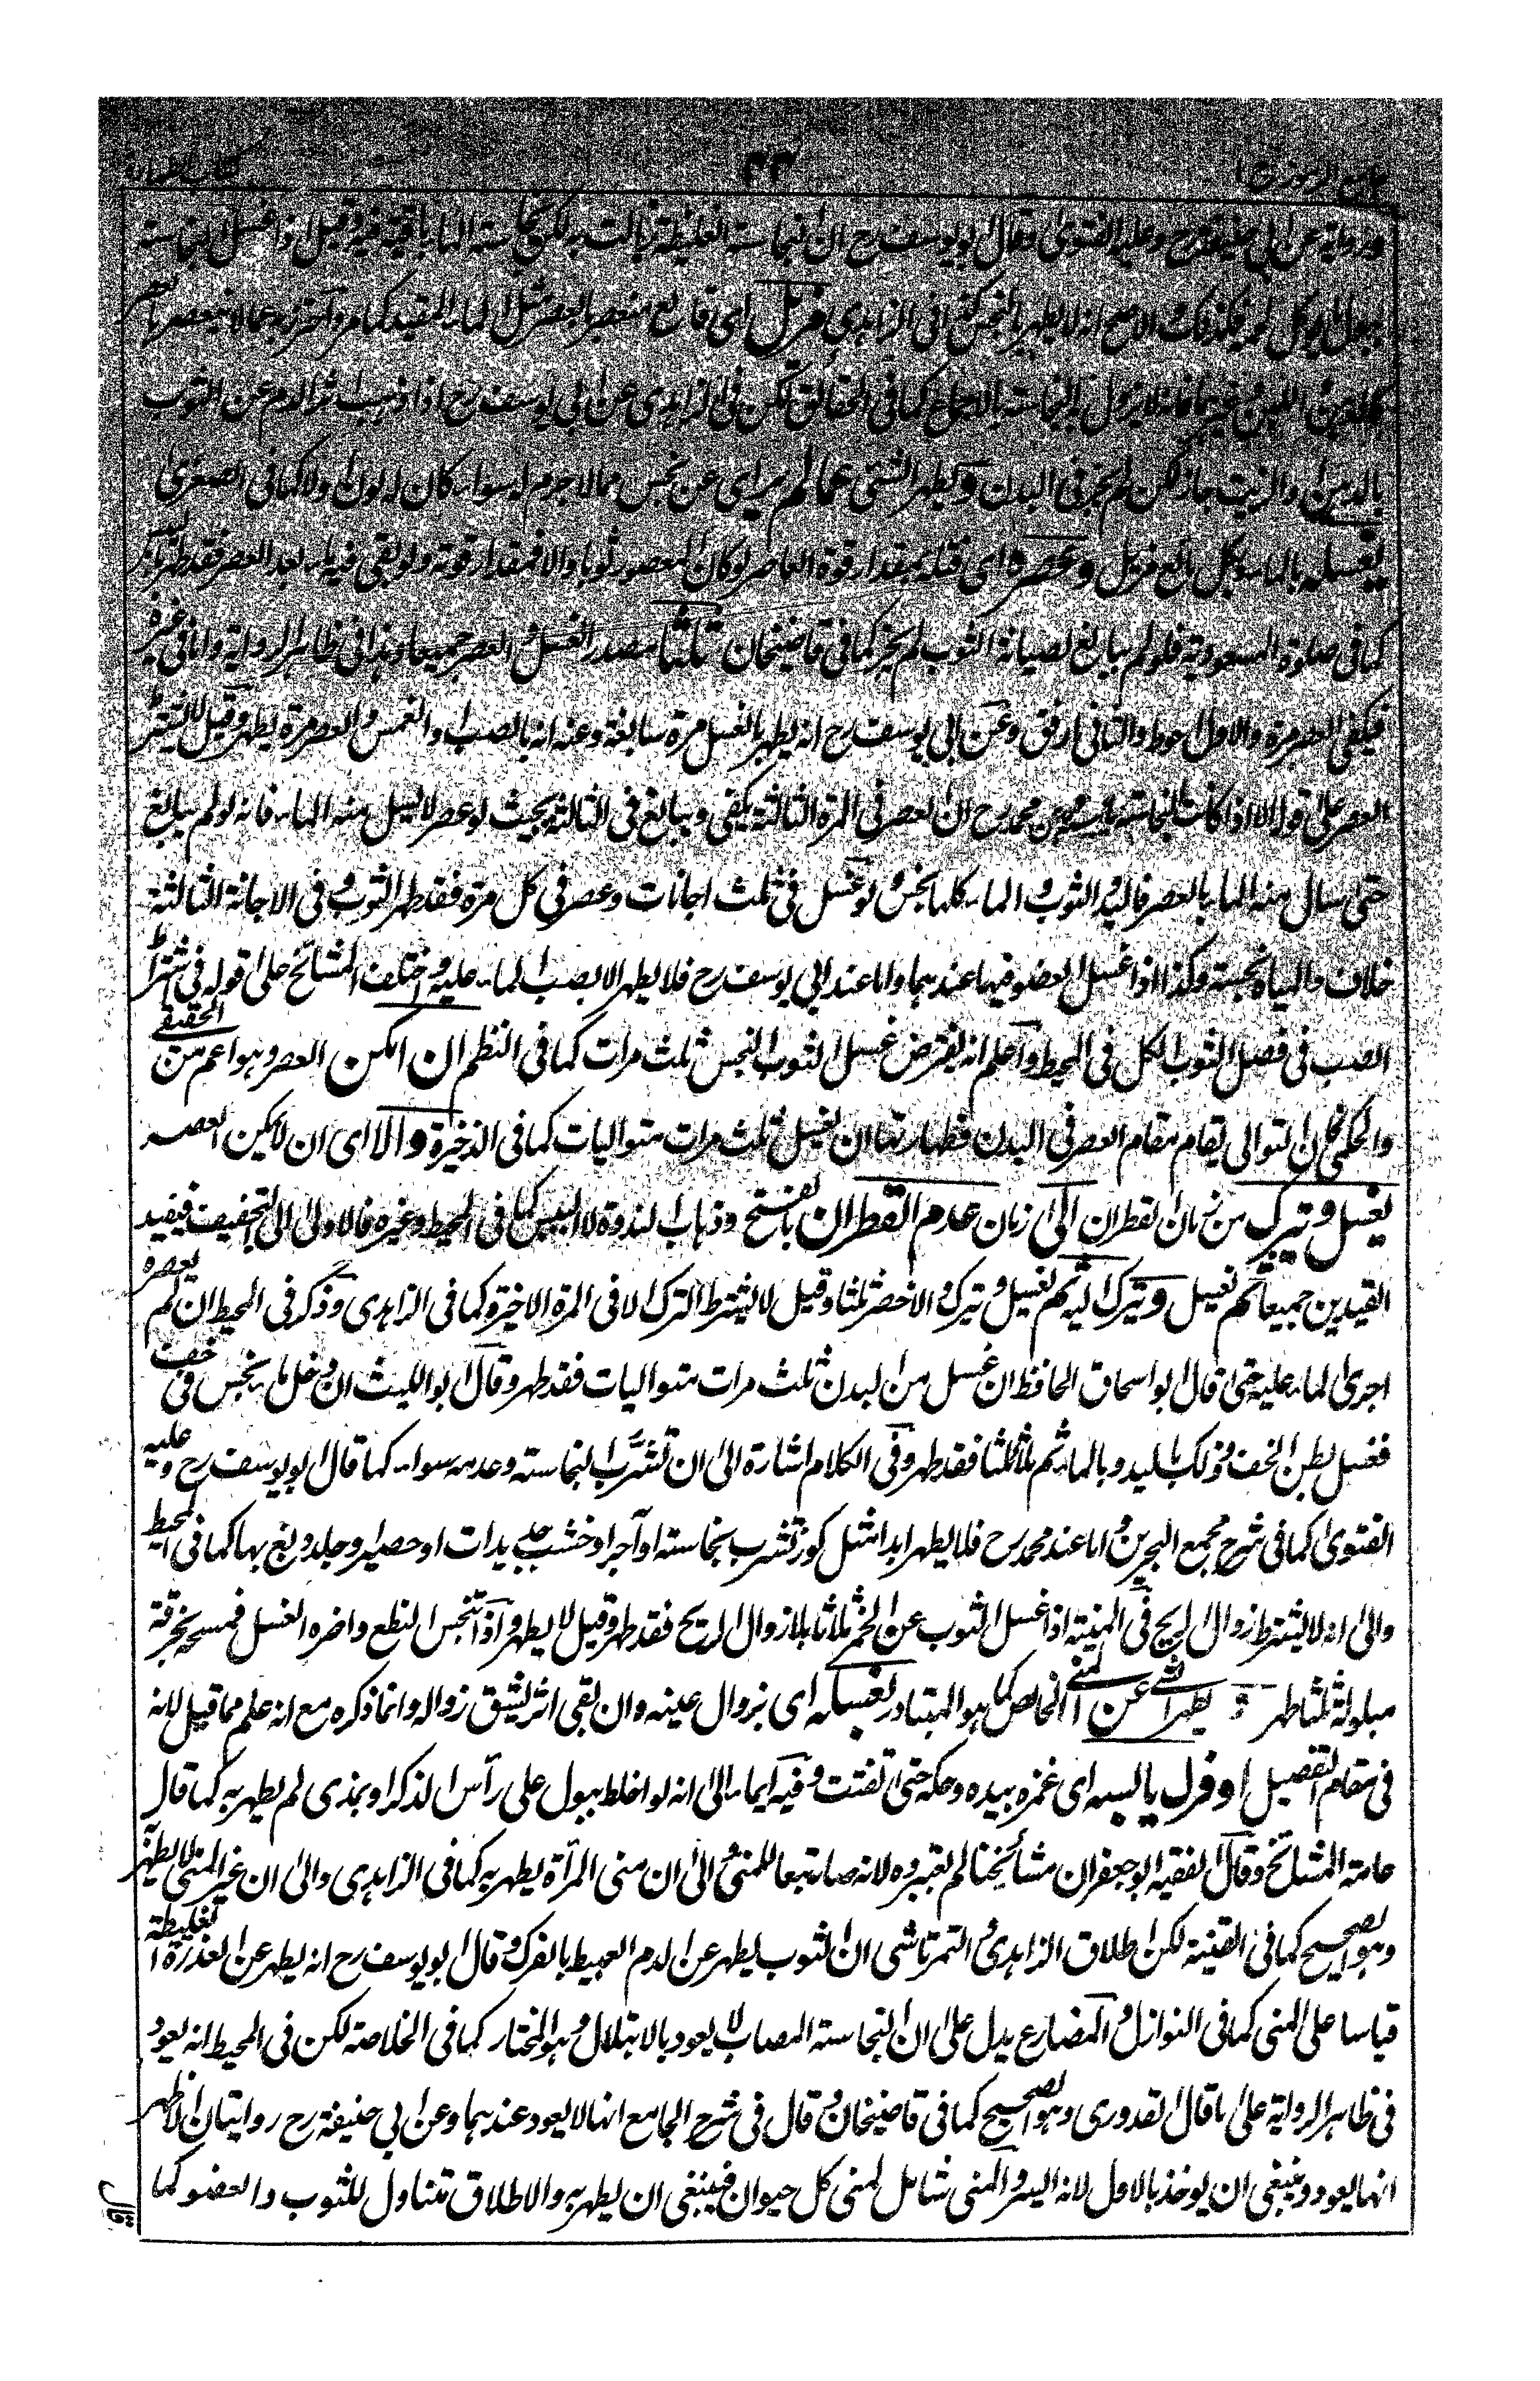 جامع الرموز ج ١ ٤٣ كتاب الطهارة
ورواية عن ابي حنيفة رح وعليه الفتوى وقال ابو يوسف رح ان النجاسة الغليظة زالت به لكن نجاسة الماء باقية فيه وقيل اذا غسل النجاسة
ببول ما يوكل لحمه فكذلك والاصح انه لا يطهر بالنجس كما فى الزاهدى مزيل اى قالع منعصر بالعصر مثل الماء المقيد كما مر واحترز به عما لا ينعصر بالعصر
كالدهن اللبن وغيرهما فانه لا يزول به النجاسة بالاجماع كما فى الحقائق لكن فى الزاهدى عن ابى يوسف رح اذا ذهب اثر الدم عن الثوب
بالدهن او الزيت جاز لكن لم يجز فى البدن ويطهر الشئ عما لم ير اى عن نجس مما لا جرم له سواء كان له لون اولا كما فى الصغرى
بغسله بالماء وبكل مائع مزيل وعصره اى فتله بمقدار قوة العاصر لو كان المعصور ثوبا والا فمقدار قوته ولو بقى فيه ماء بعد العصر فقد طهر
كما فى صلوة المسعودية فلو لم يبالغ لصيانة الثوب لم يجز كما فى قاضيخان ثلثا مصدر الغسل والعصر جميعا وهذا فى ظاهر الرواية واما فى غيره
فيكفى العصر مرة والاول احوط والثانى ارفق وعن ابى يوسف رح انه يطهر بالغسل مرة سابغة وعنه انه بالصب والغمس والعصر مرة يطهر وقيل لا يشترط
العصر على قوله الا اذا كانت النجاسة يابسة وعن محمد رح ان العصر فى المرة الثالثة يكفى ويبالغ فى الثالثة بحيث لو عصر لا يسيل منه الماء فانه لو لم يبالغ
حتى سال منه الماء بالعصر فاليد والثوب والماء كلها نجس ولو غسل فى ثلث اجانات وعصر فى كل مرة فقد طهر الثوب فى الاجانة الثالثة
خلاف والمياه نجسة وكذا اذا غسل العضو فيها عندهما واما عند ابى يوسف رح فلا يطهر الا بصب الماء عليه واختلف المشائخ على قوله فى شرط
الصب فى فصل الثوب الكل فى المحيط واعلم انه يفترض غسل الثوب النجس ثلث مرات كما فى النظم ان امكن العصر وهو اعم من الحقيقى
والحكمى فان التوالى يقام مقام العصر فى البدن فطهارتها ان يغسل ثلث مرات متواليات كما فى الذخيرة والا اى ان لا يمكن العصر
يغسل ويترك من زمان القطران الى زمان عدم القطران بالفتح وذهاب الندوة لا اليبس كما فى المحيط وغيره فالاولى الى التجفيف فيفيد
القيدين جميعا ثم يغسل ويترك اليه ثم يغسل ويترك والاخصر ثلثا وقيل لا يشترط الترك الا فى المرة الاخيرة كما فى الزاهدى وذكر فى المحيط ان لم يعصره
اجرى الماء عليه حتى قال ابو اسحاق الحافظ ان غسل من البدن ثلث مرات متواليات فقد طهر وقال ابو الليث ان دخل ماء نجس فى خف
فغسل بطن الخف وذلك باليد وبالماء ثم ثلثا فقد طهر وفى الكلام اشارة الى ان تشرب النجاسة وعدمه سواء كما قال ابو يوسف رح وعليه
الفتوى كما فى شرح مجمع البحرين واما عند محمد رح فلا يطهر ابدا مثل كوز تشرب نجاسة او آجر او خشب جديدات او حصير او جلد دبغ بها كما فى المحيط
والى انه لا يشترط زوال الريح ففى المنية اذا غسل الثوب عن الخمر ثلاثا بلا زوال الريح فقد طهر وقيل لا يطهر واذا تنجس النطع واضره الغسل فمسحه بخرقة
مبلولة ثلثا طهر و يطهر الشئ عن المنى الخالص كما هو المتبادر بغسله اى بزوال عينه وان بقى اثر يشق زواله وانما ذكره مع انه علم مما قيل لانه
فى مقام التفصيل او فرك يابسه اى غمزه بيده وحكه حتى تفتت وفيه ايماء الى انه لو اخلط ببول على رأس الذكر او بمذى لم يطهر به كما قال
عامة المشائخ وقال الفقيه ابو جعفر ان مشائخنا لم يعتبروه لانه صار تبعا للمنى والى ان منى المرأة يطهر به كما فى الزاهدى والى ان غير المنى لا يطهر
وهو الصحيح كما فى القنية لكن اطلاق الزاهدى والتمرتاشى ان الثوب يطهر عن الدم العبيط بالفرك وقال ابو يوسف رح انه يطهر عن العذرة الغليظة
قياسا على المنى كما فى النوازل والمضارع يدل على ان النجاسة المصاب لا يعود بالابتلال وهو المختار كما فى الخلاصة لكن فى المحيط انه يعود
فى ظاهر الرواية على ما قال القدورى وهو الصحيح كما فى قاضيخان وقال فى شرح الجامع انها لا يعود عندهما وعن ابى حنيفة رح روايتان الاظهر
انها يعود وينبغى ان يوخذ بالاول لانه اليسر والمنى شامل لمنى كل حيوان فينبغى ان يطهر به والاطلاق متناول للثوب والعضو كما
يقال